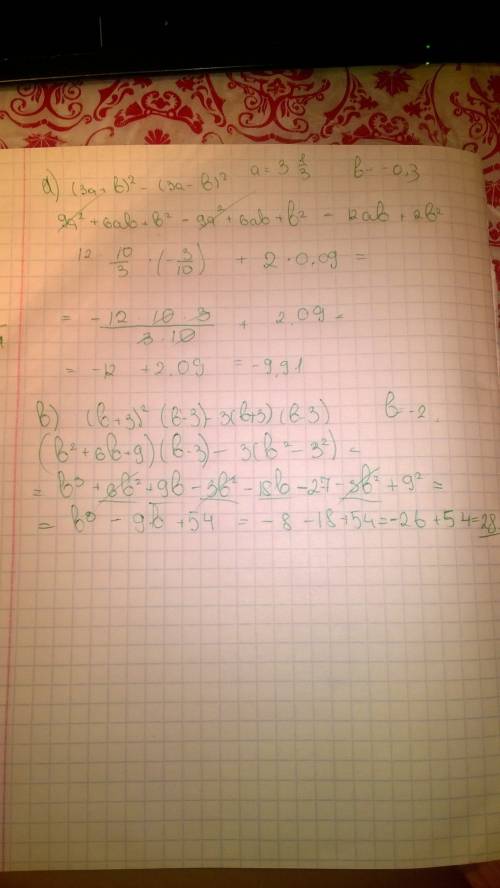 а) (3a+b)² - (3a-b)² a = 3 1/3 b = -0,3
9a² + 6ab + b² - 9a² + 6ab + b² = 12ab + 2b²
12 · 10/3 · (-3/10) + 2 · 0,09 =
= - 12 · 10 · 3 / 3 · 10 + 2,09 =
= -12 + 2,09 = -9,91
в) (b+3)² (b-3) - 3(b+3)(b-3) b = -2
(b² + 6b + 9)(b-3) - 3(b² - 3²) =
= b³ + 6b² + 9b - 3b² - 18b - 27 - 3b² + 9² =
= b³ - 9b + 54 = -8 - 18 + 54 = -26 + 54 = 28